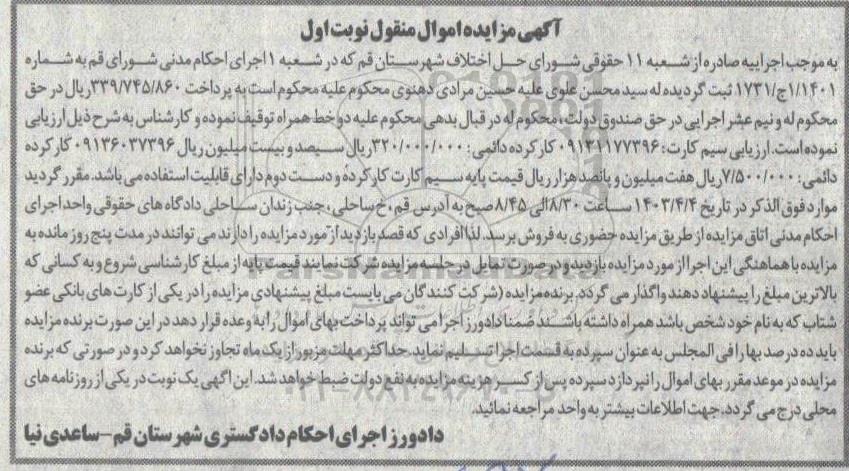 آگهی مزایده اموال منقول نوبت اول
به موجب اجراییه صادره از شعبه ۱۱ حقوقی شورای حل اختلاف شهرستان قم که در شعبه ۱ اجرای احکام مدنی شورای قم به شماره
۱/۱۴۰۱ج/۱۷۳۱ ثبت گردیده له سید محسن علوی علیه حسین مرادی دهنوی محکوم علیه محکوم است به پرداخت ۳۳۹/۷۴۵/۸۶۰ریال در حق
محکوم له و نیم عشر اجرایی در حق صندوق دولت، محکوم له در قبال بدهی محکوم علیه دو خط همراه توقیف نموده و کارشناس به شرح ذیل ارزیابی
نموده است. ارزیابی سیم کارت: ۰۹۱۳۱۱۷۷۳۹۶ کارکرده دائمی: ۳۲۰/۰۰۰/۰۰۰ریال سیصد و بیست میلیون ریال ۰۹۱۳۶۰۳۷۳۹۶ کارکرده
دائمی: ۷/۵۰۰/۰۰۰ریال هفت میلیون و پانصد هزار ریال قیمت پایه سیم کارت کارکرده و دست دوم دارای قابلیت استفاده می باشد. مقرر گردید
موارد فوق الذکر در تاریخ ۱۴۰۳/۴/۴ ساعت ۸/۳۰الی ۸/۴۵صبح به آدرس قم،خ ساحلی، جنب زندان ساحلی دادگاه های حقوقی واحد اجرای
احکام مدنی اتاق مزایده از طریق مزایده حضوری به فروش برسد. لذا افرادی که قصد بازدید از مورد مزایده را دارند می توانند در مدت پنج روز مانده به
مزایده با هماهنگی این اجرا از مورد مزایده بازدید و در صورت تمایل در جلسه مزایده شرکت نمایند قیمت پایه از مبلغ کارشناسی شروع و به کسانی که
بالاترین مبلغ را پیشنهاد دهند واگذار می گردد. برنده مزایده (شرکت کنندگان می بایست مبلغ پیشنهادی مزایده را در یکی از کارت های بانکی عضو
شتاب که به نام خود شخص باشد همراه داشته باشند ضمنا دادورز اجرا می تواند پرداخت بهای اموال را به وعده قرار دهد در این صورت برنده مزایده
باید ده درصد بها را فی المجلس به عنوان سپرده به قسمت اجرا تسلیم نماید حداکثر مهلت مزبور از یک ماه تجاوز نخواهد کرد و در صورتی که برنده
مزایده در موعد مقرر بهای اموال را نپردازد سپرده پس از کسر هزینه مزایده به نفع دولت ضبط خواهد شد. این اگهی یک نوبت در یکی از روزنامه های
محلی درج می گردد. جهت اطلاعات بیشتر به واحد مراجعه نمائید.
دادورز اجرای احکام دادگستری شهرستان قم-ساعدی نیا